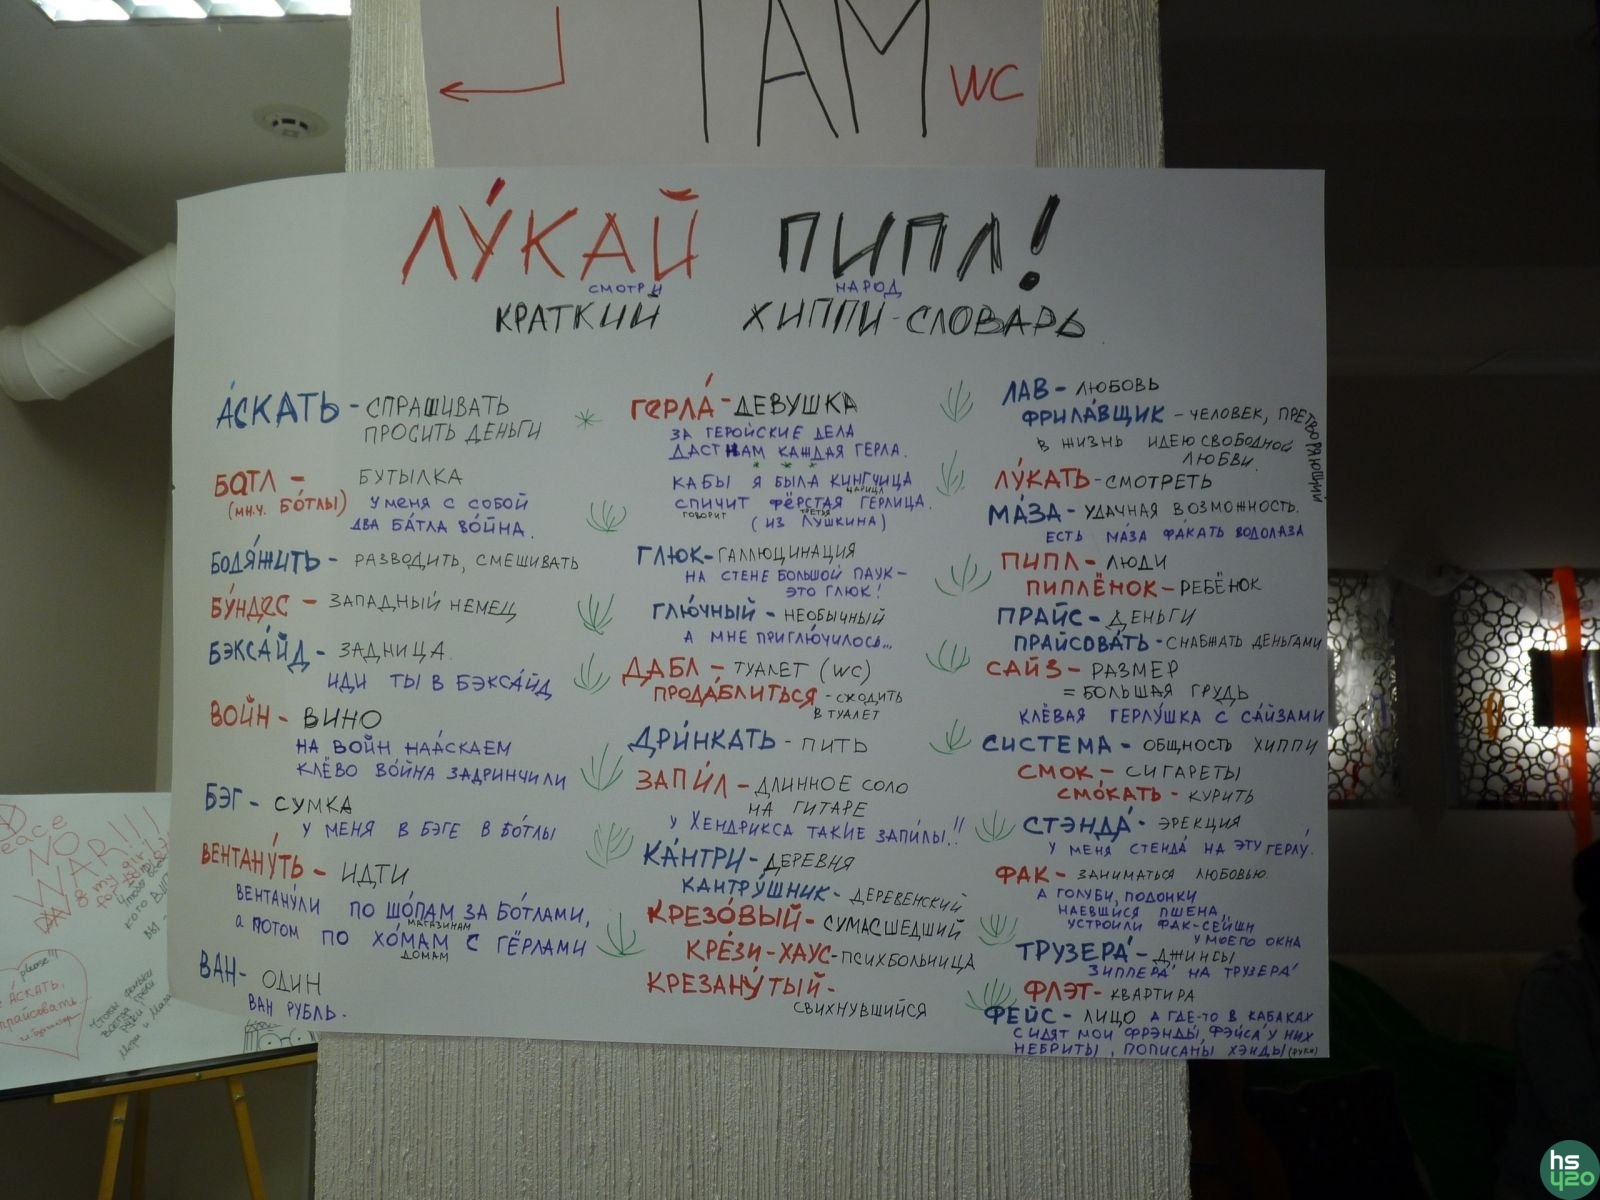 ТАМ WC
ЛУ́КАЙ ПИПЛ!
СМОТРИ НАРОД
КРАТКИЙ ХИППИ-СЛОВАРЬ
А́СКАТЬ - СПРАШИВАТЬ
ПРОСИТЬ ДЕНЬГИ
БАТЛ - БУТЫЛКА
(МН.Ч. БО́ТЛЫ) У МЕНЯ С СОБОЙ
ДВА БА́ТЛА ВО́ЙНА.
БОДЯ́ЖИТЬ - РАЗВОДИТЬ, СМЕШИВАТЬ
БУ́НДЕС - ЗАПАДНЫЙ НЕМЕЦ
БЭКСА́ЙД - ЗАДНИЦА.
ИДИ ТЫ В БЭКСА́ЙД
ВОЙН - ВИНО
НА ВОЙН НАА́СКАЕМ
КЛЁВО ВО́ЙНА ЗАДРИНЧИЛИ
БЭГ - СУМКА
У МЕНЯ В БЭГЕ В БО́ТЛЫ
ВЕНТАНУ́ТЬ - ИДТИ
ВЕНТАНУ́ЛИ ПО ШО́ПАМ ЗА БО́ТЛАМИ,
МАГАЗИНАМ
а ПОТОМ ПО ХО́МАМ С ГЁРЛАМИ
ДОМАМ
ВАН - ОДИН
ВАН РУБЛЬ.
ГЕРЛА́ - ДЕВУШКА
ЗА ГЕРОЙСКИЕ ДЕЛА
ДАСТ НАМ КАЖДАЯ ГЕРЛА.
КАБЫ Я БЫЛА КИНГЧИЦА
ЦАРИЦА
СПИЧИТ ФЁРСТАЯ ГЕРЛИЦА.
ГОВОРИТ ТРЕТЬЯ
(ИЗ ПУШКИНА)
ГЛЮК - ГАЛЛЮЦИНАЦИЯ
НА СТЕНЕ БОЛЬШОЙ ПАУК -
ЭТО ГЛЮК!
ГЛЮ́ЧНЫЙ - НЕОБЫЧНЫЙ
А МНЕ ПРИГЛЮ́ЧИЛОСЬ...
ДАБЛ - ТУАЛЕТ (WC)
ПРОДА́БЛИТЬСЯ - СХОДИТЬ
В ТУАЛЕТ
ДРИ́НКАТЬ - ПИТЬ
ЗАПИ́Л - ДЛИННОЕ СОЛО
НА ГИТАРЕ
У ХЕНДРИКСА ТАКИЕ ЗАПИ́ЛЫ!!
КА́НТРИ - ДЕРЕВНЯ
КАНТРУ́ШНИК - ДЕРЕВЕНСКИЙ
КРЕЗО́ВЫЙ - СУМАСШЕДШИЙ
КРЕ́ЗИ-ХАУС - ПСИХБОЛЬНИЦА
КРЕЗАНУ́ТЫЙ -
СВИХНУВШИЙСЯ
ЛАВ - ЛЮБОВЬ
ФРИЛА́ВЩИК - ЧЕЛОВЕК, ПРЕТВОРЯЮЩИЙ
В ЖИЗНЬ ИДЕЮ СВОБОДНОЙ
ЛЮБВИ.
ЛУ́КАТЬ - СМОТРЕТЬ
МА́ЗА - УДАЧНАЯ ВОЗМОЖНОСТЬ.
ЕСТЬ МА́ЗА ФА́КАТЬ ВОДОЛАЗА
ПИПЛ - ЛЮДИ
ПИПЛЁНОК - РЕБЁНОК
ПРАЙС - ДЕНЬГИ
ПРАЙСОВА́ТЬ - СНАБЖАТЬ ДЕНЬГАМИ
САЙЗ - РАЗМЕР
= БОЛЬШАЯ ГРУДЬ
КЛЁВАЯ ГЕРЛУ́ШКА С СА́ЙЗАМИ
СИСТЕМА - ОБЩНОСТЬ ХИППИ
СМОК - СИГАРЕТЫ
СМО́КАТЬ - КУРИТЬ
СТЭНДА́ - ЭРЕКЦИЯ
У МЕНЯ СТЕНДА́ НА ЭТУ ГЕРЛУ́.
ФАК - ЗАНИМАТЬСЯ ЛЮБОВЬЮ.
А ГОЛУБИ, ПОДОНКИ
НАЕВШИСЯ ПШЕНА,
УСТРОИЛИ ФАК-СЕЙШН
У МОЕГО ОКНА
ТРУЗЕРА́ - ДЖИНСЫ
ЗИППЕРА́ НА ТРУЗЕРА́
ФЛЭТ - КВАРТИРА
ФЕЙС - ЛИЦО А ГДЕ-ТО В КАБАКАХ
СИДЯТ МОИ ФРЭНДЫ, ФЭЙСА́ У НИХ
НЕБРИТЫ, ПОПИСАНЫ ХЭНДЫ (РУКИ)
eace
NO
WAR!!!
please!!!
А́СКАТЬ,
прайсовать
hs
420